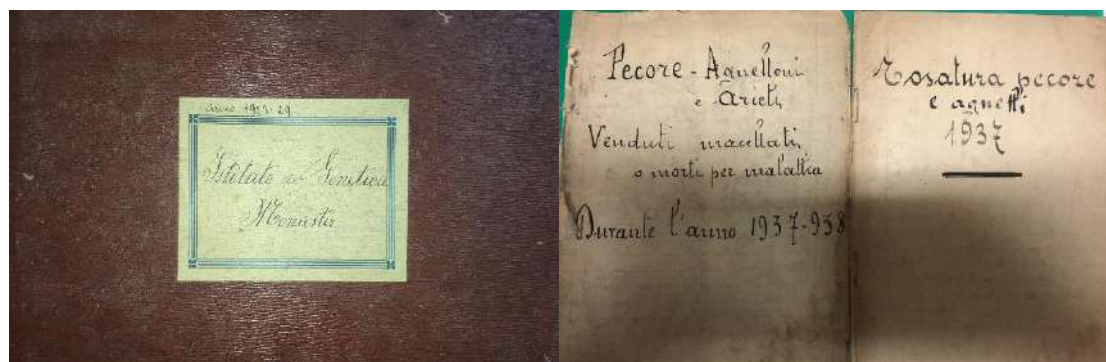 Anno 1923-29
Istituto di Genetica
Monastir
Pecore - Agnelloni
e Arieti
Venduti macellati
o morti per malattia
Durante l'anno 1937-938
Tosatura pecore
e agnelli
1937